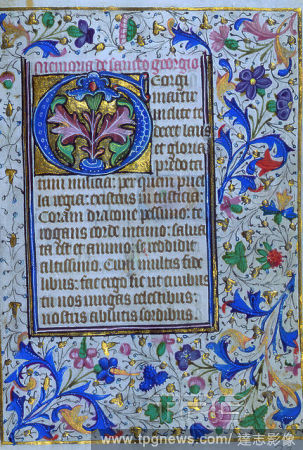 Memoria de sancto georgio
Georgi
martir
inclite te
decet laus
et gloria
predota
tum milicia: per quem puel
la regia: existens in tristicia:
Coram dracone pessimo: te
rogans corde intimo: salua
ta est et animo: se reddidit
altissimo. Cum multis fide
libus: fac ergo sic ut ciuibus
tu nos iungas celestibus:
nostris ablutis sordibus:
www.tpgnews.com / 達志影像